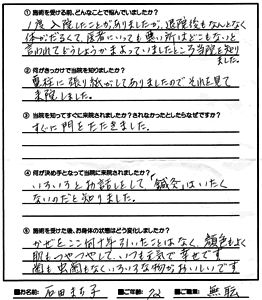 ① 施術を受ける前、どんなことで悩んでいましたか?
1度入院したことがありましたが、退院後もなんとなく
体がだるくて、医者にいっても悪い所はどこもないと
言われてどうしようかまよっていましたところ当院を知り
ました。
② 何がきっかけで当院を知りましたか?
電柱に張り紙がしてありましたのでそれを見て
来院しました。
③ 当院を知ってすぐに来院されましたか?されなかったとしたらなぜですか?
すぐに門をたたきました。
④ 何が決め手となって当院に来院されましたか?
いろいろとお話しをして「鍼灸」はいたく
ないのだと知りました。
⑤ 施術を受けた後、お身体の状態はどう変化しましたか?
かぜをここ何十年引いたことはなく、顔色もよく
肌もつやつやして、いつも元気で幸せです
歯も虫歯もなくいろいろな物がおいしいです
■お名前: 石田まち子 ■ご年齢: 72 ■ご職業: 無職